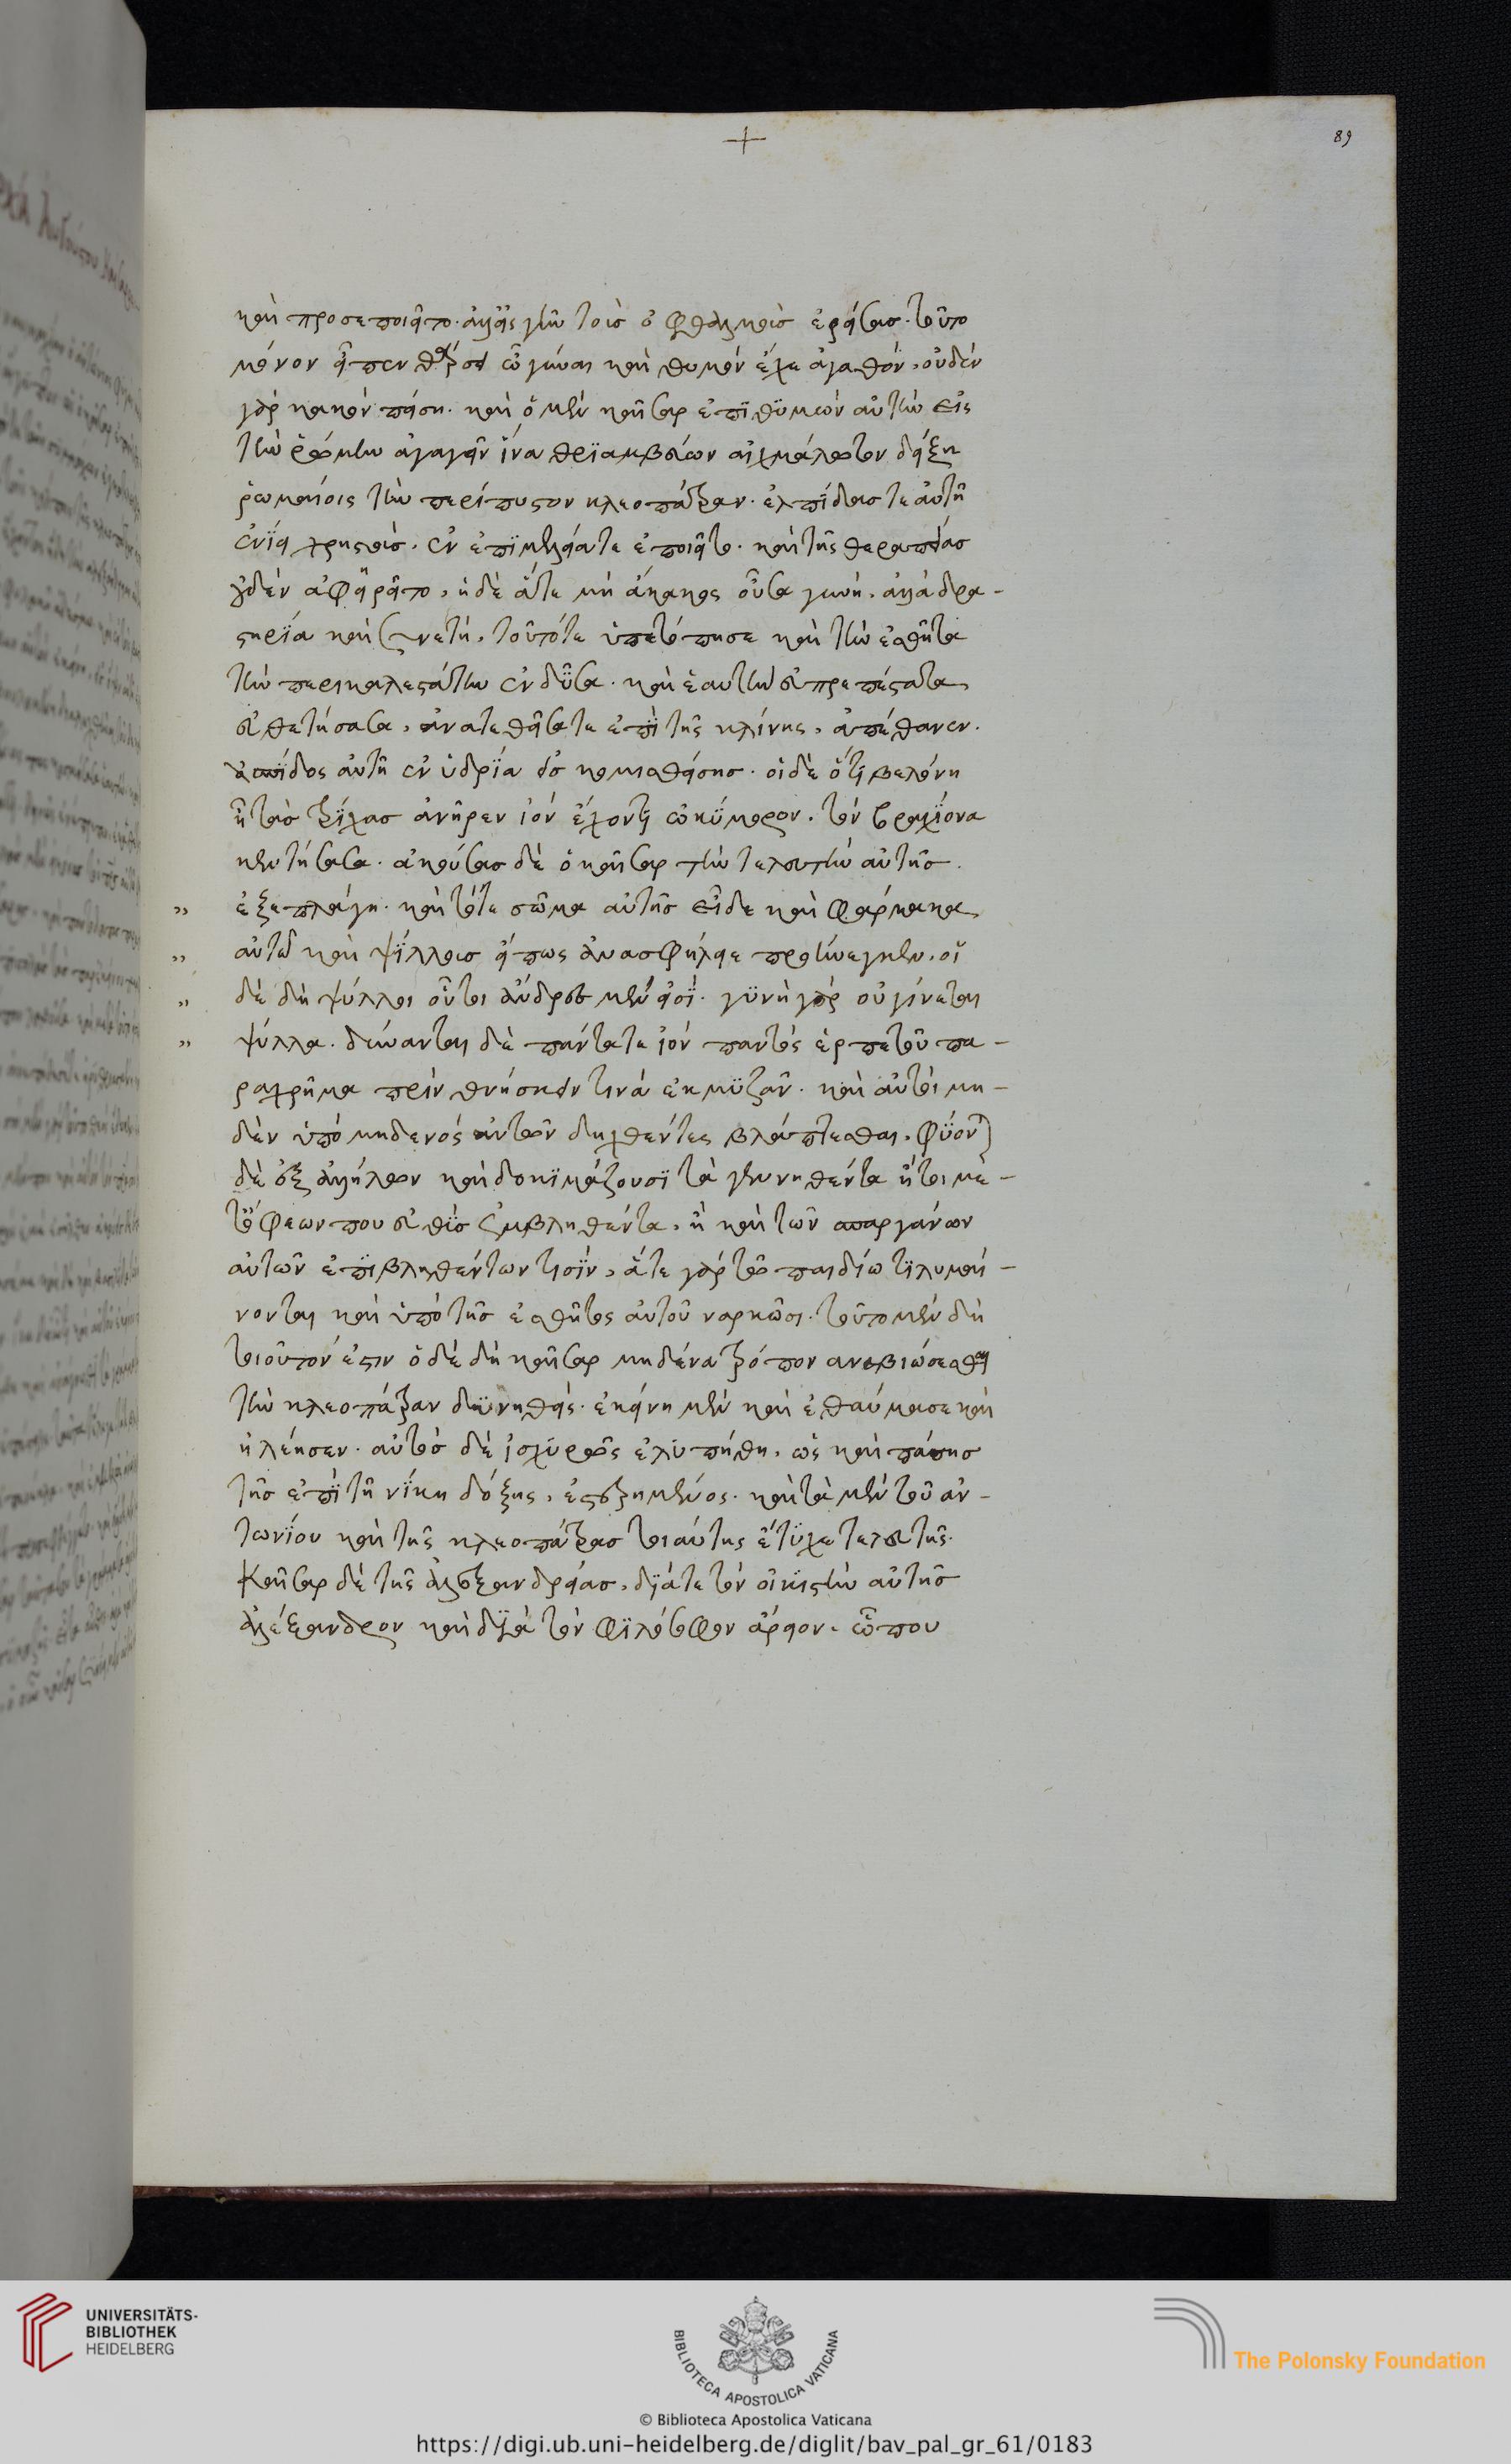 καὶ προσεποιεῖτο. ἀλλ' εἰς γῆν τοὺς ὀφθαλμοὺς ἐρείσας. τοῦτο
μόνον εἶπεν θάρσει ὦ γύναι καὶ θυμὸν ἔχε ἀγαθόν, οὐδὲν
γὰρ κακὸν πείσῃ. καὶ ὁ μὲν καῖσαρ ἐπϊθϋμῶν αὐτὴν εἰς
τὴν ῥώμην ἀγαγεῖν ἵνα θρϊαμβεύων αἰχμάλωτον δείξη
ῥωμαίοις τὴν περίπυστον κλεοπάτραν. ἐλπίδας τε αὐτῆ
ἐνϊει χρηστάς. ἐν ἐπϊμελεία τε ἐποιεῖτο. καὶ τῆς θεραπείας
οὐδὲν ἀφηρεῖτο, ἡ δὲ ἅτε μὴ ἄκακος οὖσα γυνή. ἀλλὰ δρα-
στηρϊα καὶ συνετή. τοῦτό τε ὑπετόπησε καὶ τὴν ἐσθῆτα
τὴν περικαλεστάτην ἐνδῦσα. καὶ ἑαυτὴν εὐπρεπέστατα,
εὐθετήσασα, ἀνατεθεῖσά τε ἐπὶ τῆς κλίνης, ἀπέθανεν.
ἀσπϊδος αὐτῆ ἐν ὑδρϊα εἰσκομισθείσης. οἱ δὲ ὅτι βελόνη
ἧ τὰς τρϊχας ἀνῆρεν ἰὸν ἔχοντι ὠκϋμορον. τὸν βραχϊονα
κεντήσασα. ἀκούσας δὲ ὁ καῖσαρ τὴν τελευτὴν αὐτῆς.
" ἐξεπλάγη. καὶ τότε σῶμα αὐτῆς εἶδε καὶ φάρμακα,
" αὐτῶ καὶ ψϊλλους εἴπως ἀνασφήλειε προσήνεγκεν. οἱ
" δὲ δὴ ψύλλοι οὗτοι ἄνδρες μὲν εἰσϊ. γϋνὴ γὰρ οὐ γίνεται
" ψύλλα. δύνανται δὲ πάντα τε ἰὸν παντὸς ἑρπετοῦ πα-
ραχρῆμα πρὶν θνήσκειν τινὰ ἐκμϋζᾶν. καὶ αὐτοὶ μη-
δὲν ὑπὸ μηδενὸς αὐτῶν δηχθέντες βλάπτεσθαι. φϋον
δὲ ἐξ ἀλήλων καὶ δοκϊμάζουσϊ τὰ γεννηθέντα ἤτοι με-
τ' ὄφεων που εὐθὺς ἐμβληθέντα. ἢ καὶ τῶν σπαργάνων
αὐτῶν ἐπϊβληθέντων τισϊν, ἅτε γὰρ τῶ παιδίω τϊ λυμαί-
νονται καὶ ὑπὸ τῆς ἐσθῆτος αὐτοῦ ναρκῶσι. τοῦτο μὲν δὴ
τοιοῦτόν ἐστιν ὁ δὲ δὴ καῖσαρ μηδένα τρόπον ἀναβιώσεσθαι
τὴν κλεοπάτραν δϋνηθείς. ἐκείνη μὲν καὶ ἐθαύμασε καὶ
ἠλέησεν. αὐτὸς δὲ ἰσχϋρῶς ἐλϋπήθη. ὡς καὶ πάσης
τῆς ἐπὶ τῆ νίκη δόξης, ἐστερημένος. καὶ τὰ μὲν τοῦ ἀν-
τωνϊου καὶ τῆς κλεοπάτρας τοιαύτης ἔτϋχε τελευτῆς.
Καῖσαρ δὲ τῆς ἀλεξανδρείας, δϊά τε τὸν οἰκϊστὴν αὐτῆς
ἀλέξανδρον καὶ δϊὰ τὸν φϊλόσοφον ἄρειον. ὧπου
+
89
UNIVERSITÄTS-
BIBLIOTHEK
HEIDELBERG
BIBLIOTECA APOSTOLICA VATICANA
© Biblioteca Apostolica Vaticana
The Polonsky Foundation
https://digi.ub.uni-heidelberg.de/diglit/bav_pal_gr_61/0183